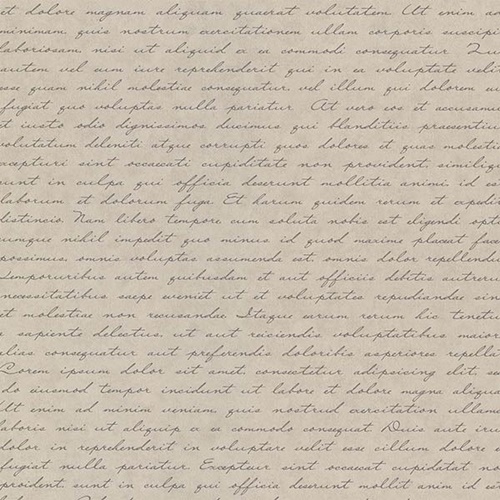 et dolore magnam aliquam quaerat voluptatem. Ut enim ad
minimam, quis nostrum exercitationem ullam corporis suscipi
laboriosam, nisi ut aliquid ex ea commodi consequatur
autem vel eum iure reprehenderit qui in ea voluptate velit
esse quam nihil molestiae consequatur, vel illum qui dolorem eu
fugiat quo voluptas nulla pariatur. At vero eos et accusamu
et iusto odio dignissimos ducimus qui blanditiis praesentiu
voluptatum deleniti atque corrupti quos dolores et quas molestia
excepturi sint occaecati cupiditate non provident, similiqu
sunt in culpa qui officia deserunt mollitia animi, id es
laborum et dolorum fuga. Et harum quidem rerum et expedit
distinctio. Nam libero tempore cum soluta nobis est eligendi opti
cumque nihil impedit quo minus id quod maxime placeat face
possimus, omnis voluptas assumenda est, omnis dolor repellendu
Temporuribus autem quibusdam et aut officiis debitis aut reru
necessitatibus saepe eveniet ut et voluptates repudiandae sin
et molestiae non recusandae. Itaque earum rerum hic tenetu
a sapiente delectus, ut aut reiciendis voluptatibus maior
alias consequatur aut preferendis doloribis asperiores repella
Lorem ipsum dolor sit amet, consectetur adipisicing elit, se
do eiusmod tempor incididunt ut labore et dolore magna aliqua
Ut enim ad minim veniam, quis nostrud exercitation ullamc
laboris nisi ut aliquip ex ea commodo consequat. Duis aute iru
dolor in reprehenderit in voluptare velit esse cillum dolore e
fugiat nulla pariatur. Excepteur sint occaecat cupidatat no
proident, sunt in culpa qui officia deserunt mollit anim id es